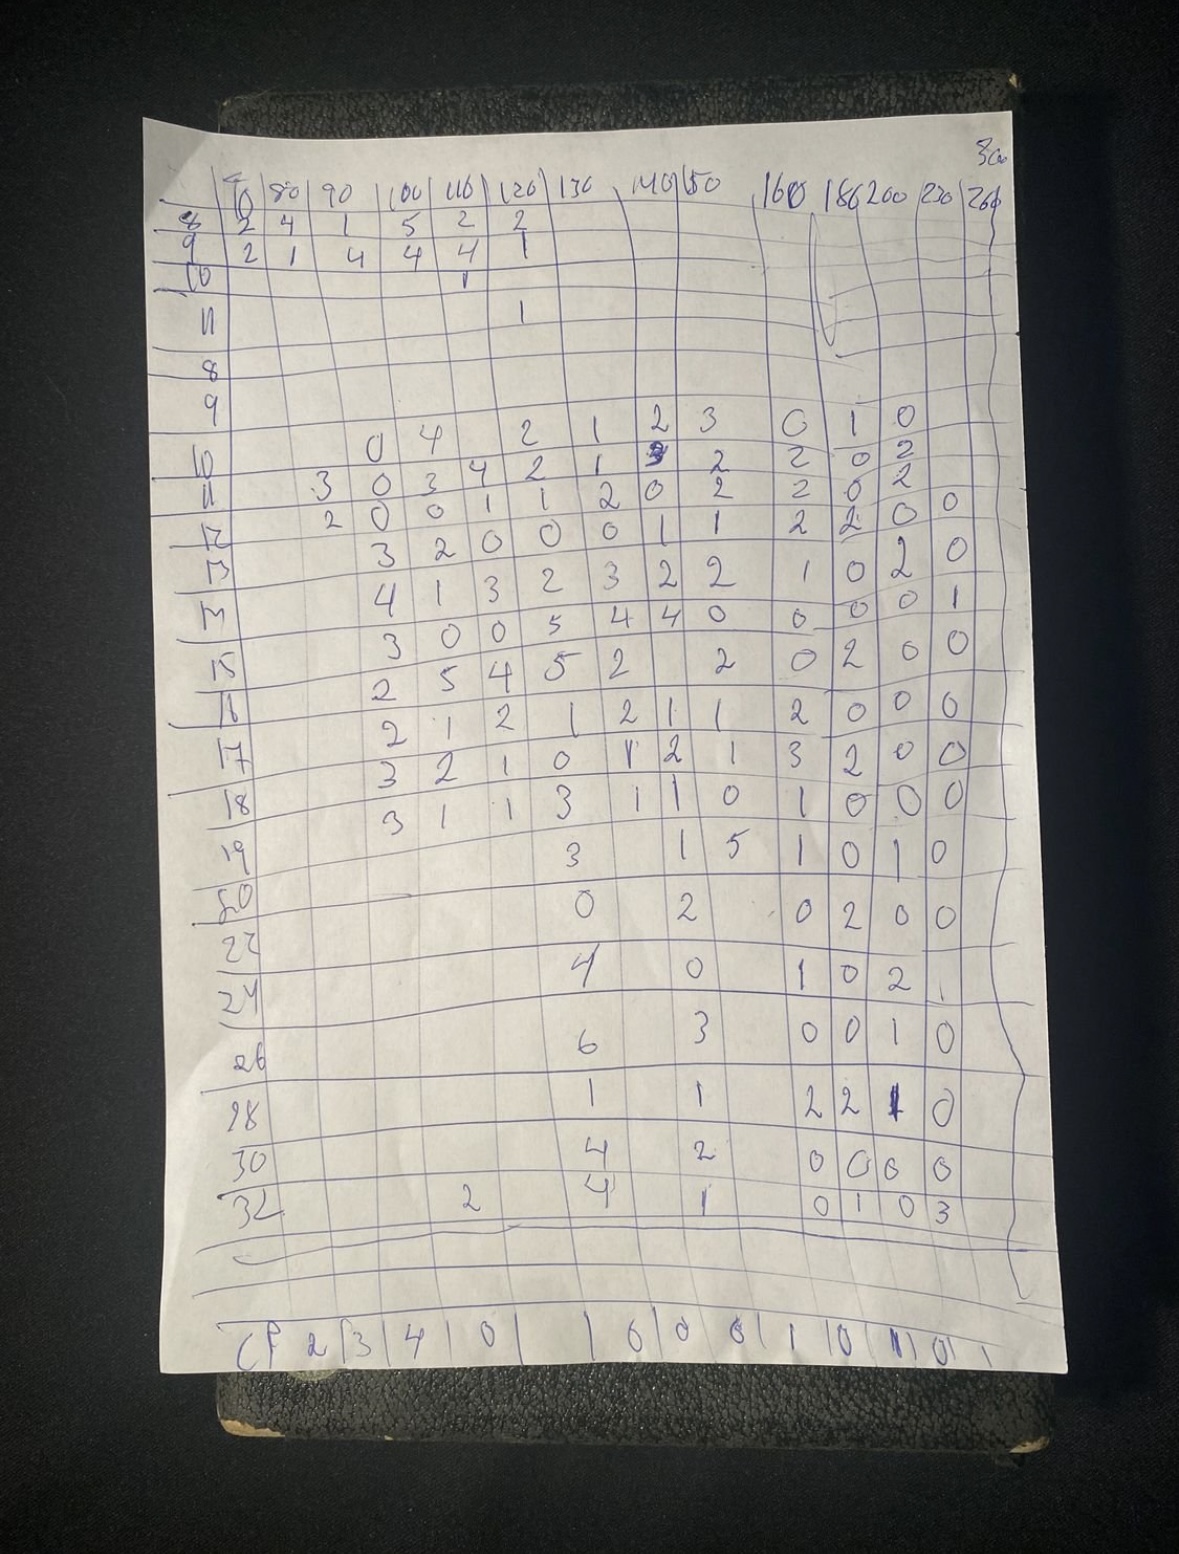 300
70 80 90 100 110 120 130 140 150 160 180 200 230 260
8 2 4 1 5 2 2
9 2 1 4 4 4 1
10 1
11 1
8
9
0 4 2 1 2 3 0 1 0
10 3 0 3 4 2 1 3 2 2 0 2
11 2 0 0 1 1 2 0 2 2 0 2
12 3 2 0 0 0 1 1 2 2 0 0
13 4 1 3 2 3 2 2 1 0 2 0
13 3 0 0 5 4 4 0 0 0 0 1
15 2 5 4 5 2 2 0 2 0 0
16 2 1 2 1 2 1 1 2 0 0 0
17 3 2 1 0 1 2 1 3 2 0 0
18 3 1 1 3 1 1 0 1 0 0 0
19 3 1 5 1 0 1 0
20 0 2 0 2 0 0
22 4 0 1 0 2 1
24
26 6 3 0 0 1 0
28 1 1 2 2 1 0
30 4 2 0 0 0 0
32 2 4 1 0 1 0 3
CP 2 3 4 0 6 0 0 1 0 1 0 1